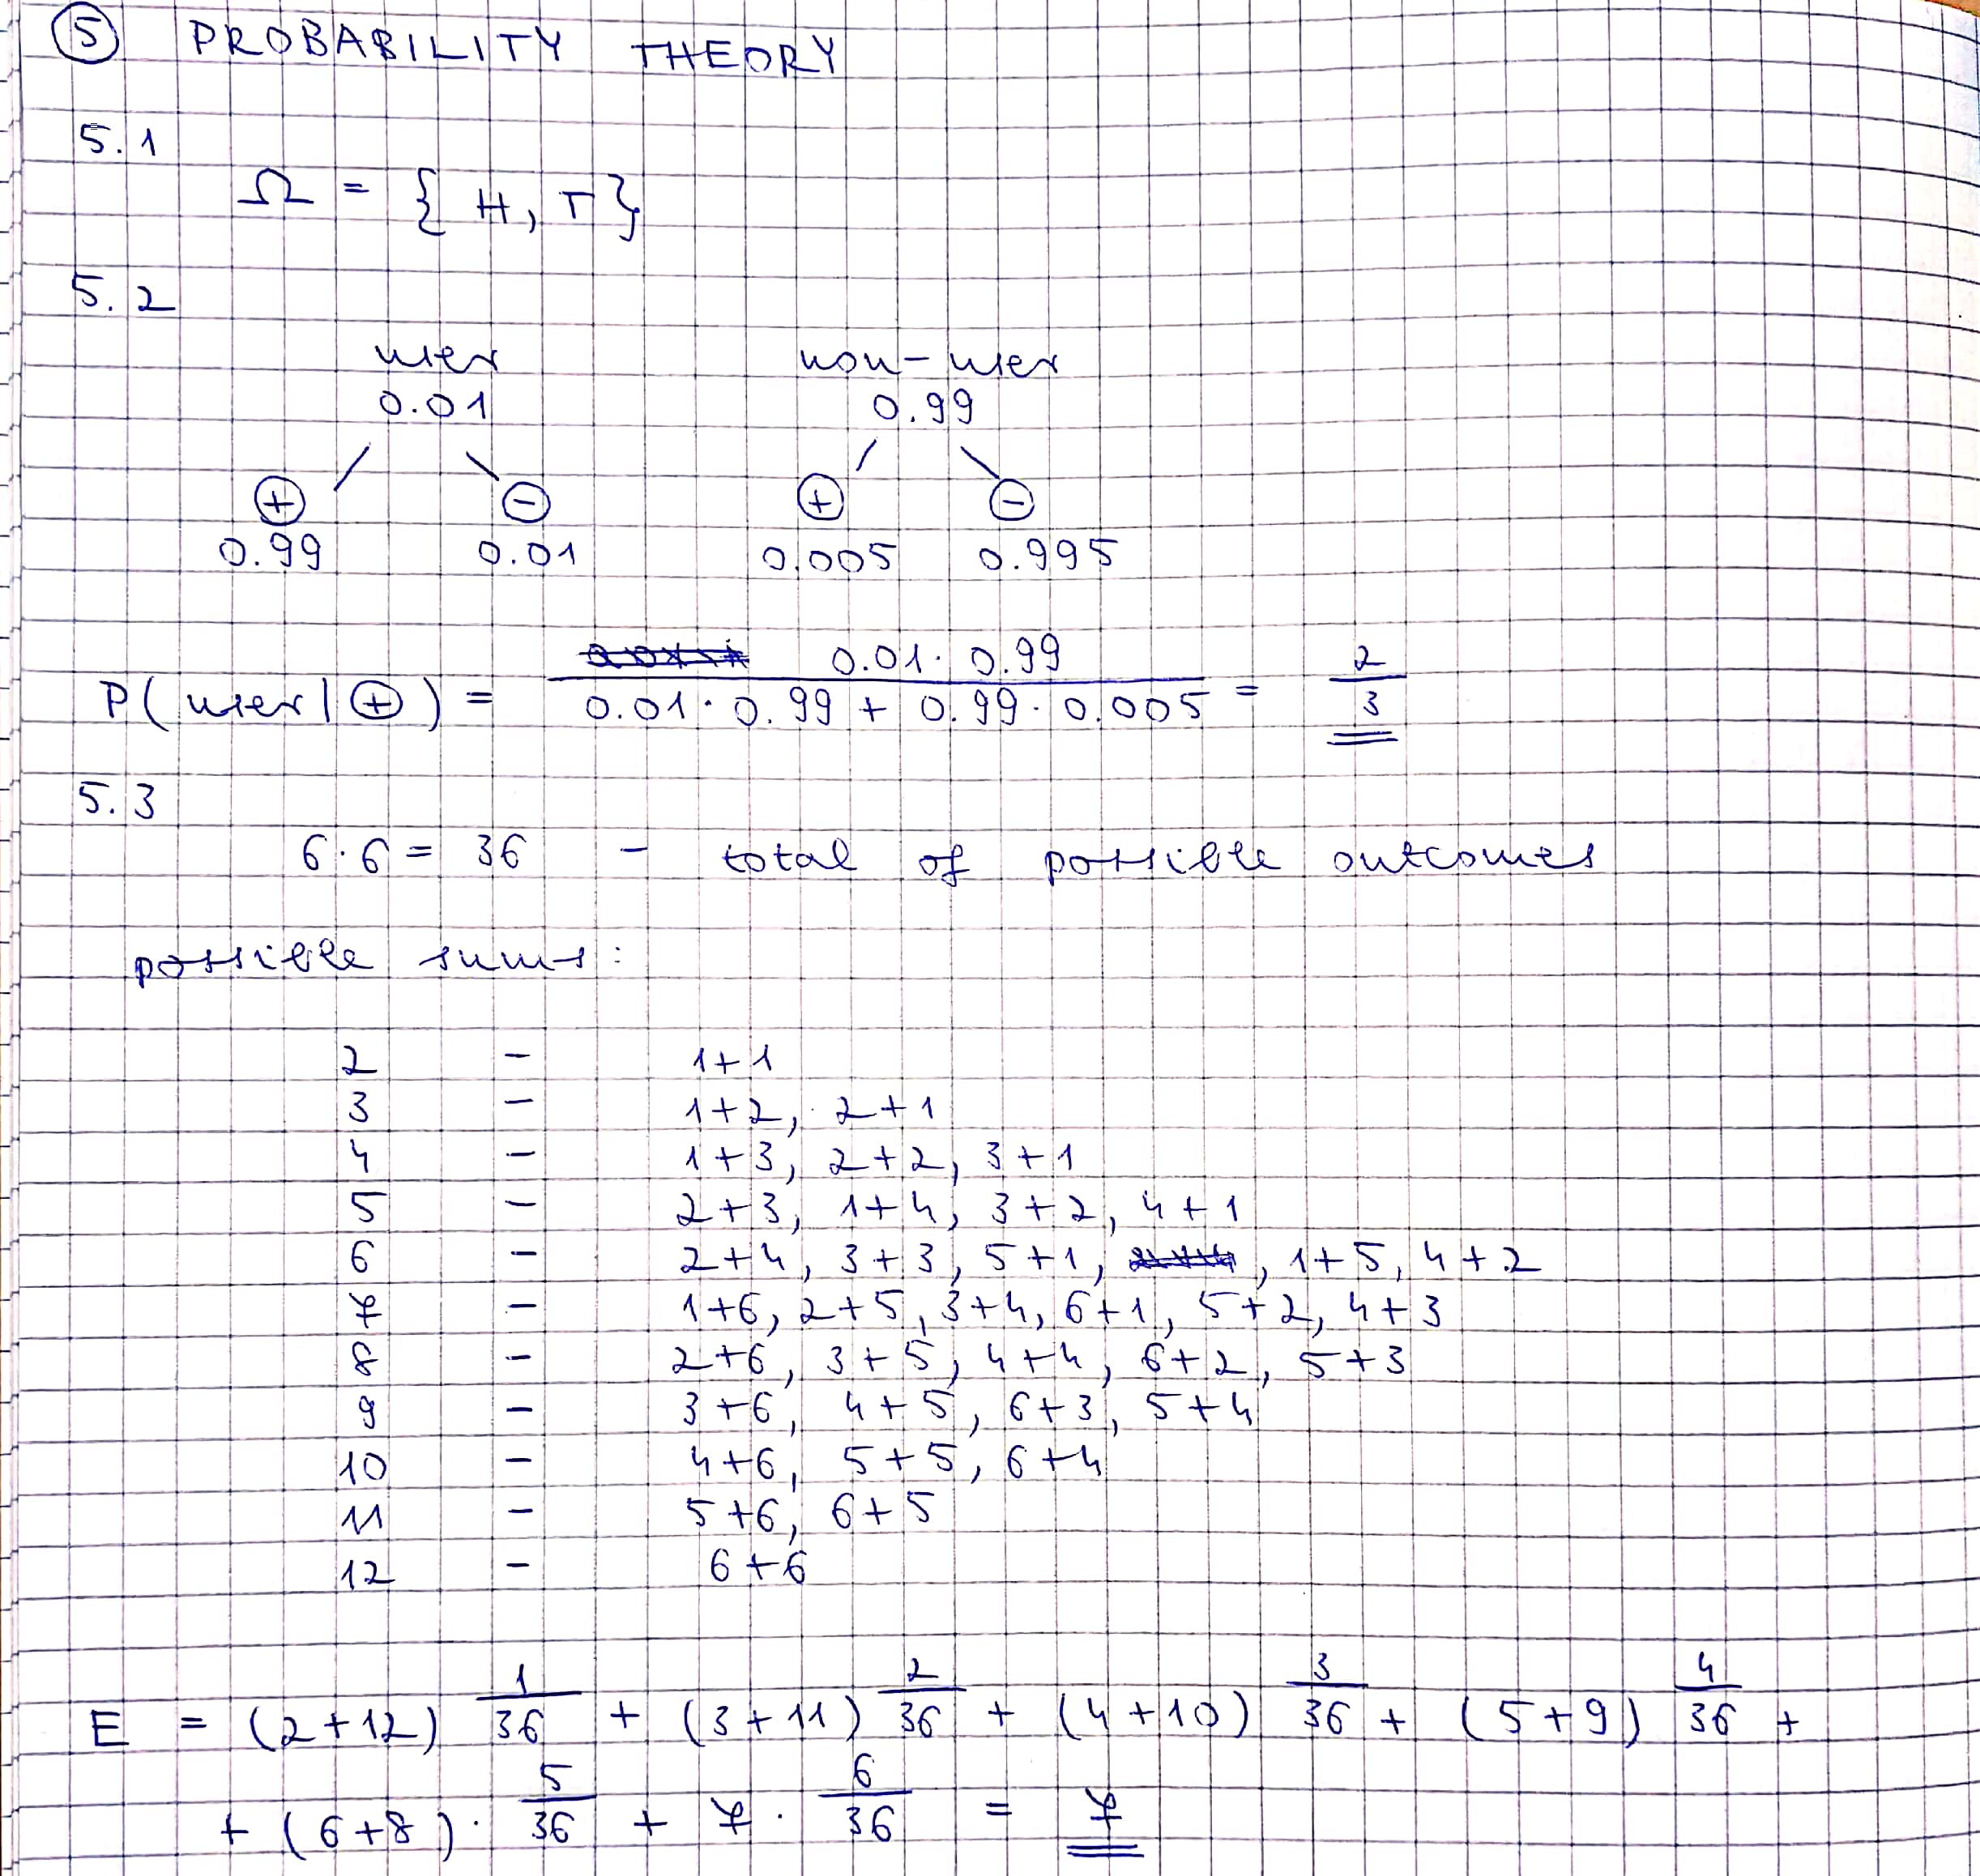 5 PROBABILITY THEORY
5.1
Ω = { H, T }
5.2
user non-user
0.01 0.99
+ - + -
0.99 0.01 0.005 0.995
0.01 · 0.99 2
P( user | + ) = ———— = —
0.01 · 0.99 + 0.99 · 0.005 3
5.3
6 · 6 = 36 - total of possible outcomes
possible sums:
2 - 1+1
3 - 1+2, 2+1
4 - 1+3, 2+2, 3+1
5 - 2+3, 1+4, 3+2, 4+1
6 - 2+4, 3+3, 5+1, , 1+5, 4+2
7 - 1+6, 2+5, 3+4, 6+1, 5+2, 4+3
8 - 2+6, 3+5, 4+4, 6+2, 5+3
9 - 3+6, 4+5, 6+3, 5+4
10 - 4+6, 5+5, 6+4
11 - 5+6, 6+5
12 - 6+6
E = (2+12) 1/36 + (3+11) 2/36 + (4+10) 3/36 + (5+9) 4/36 +
+ (6+8) · 5/36 + 7 · 6/36 = 7